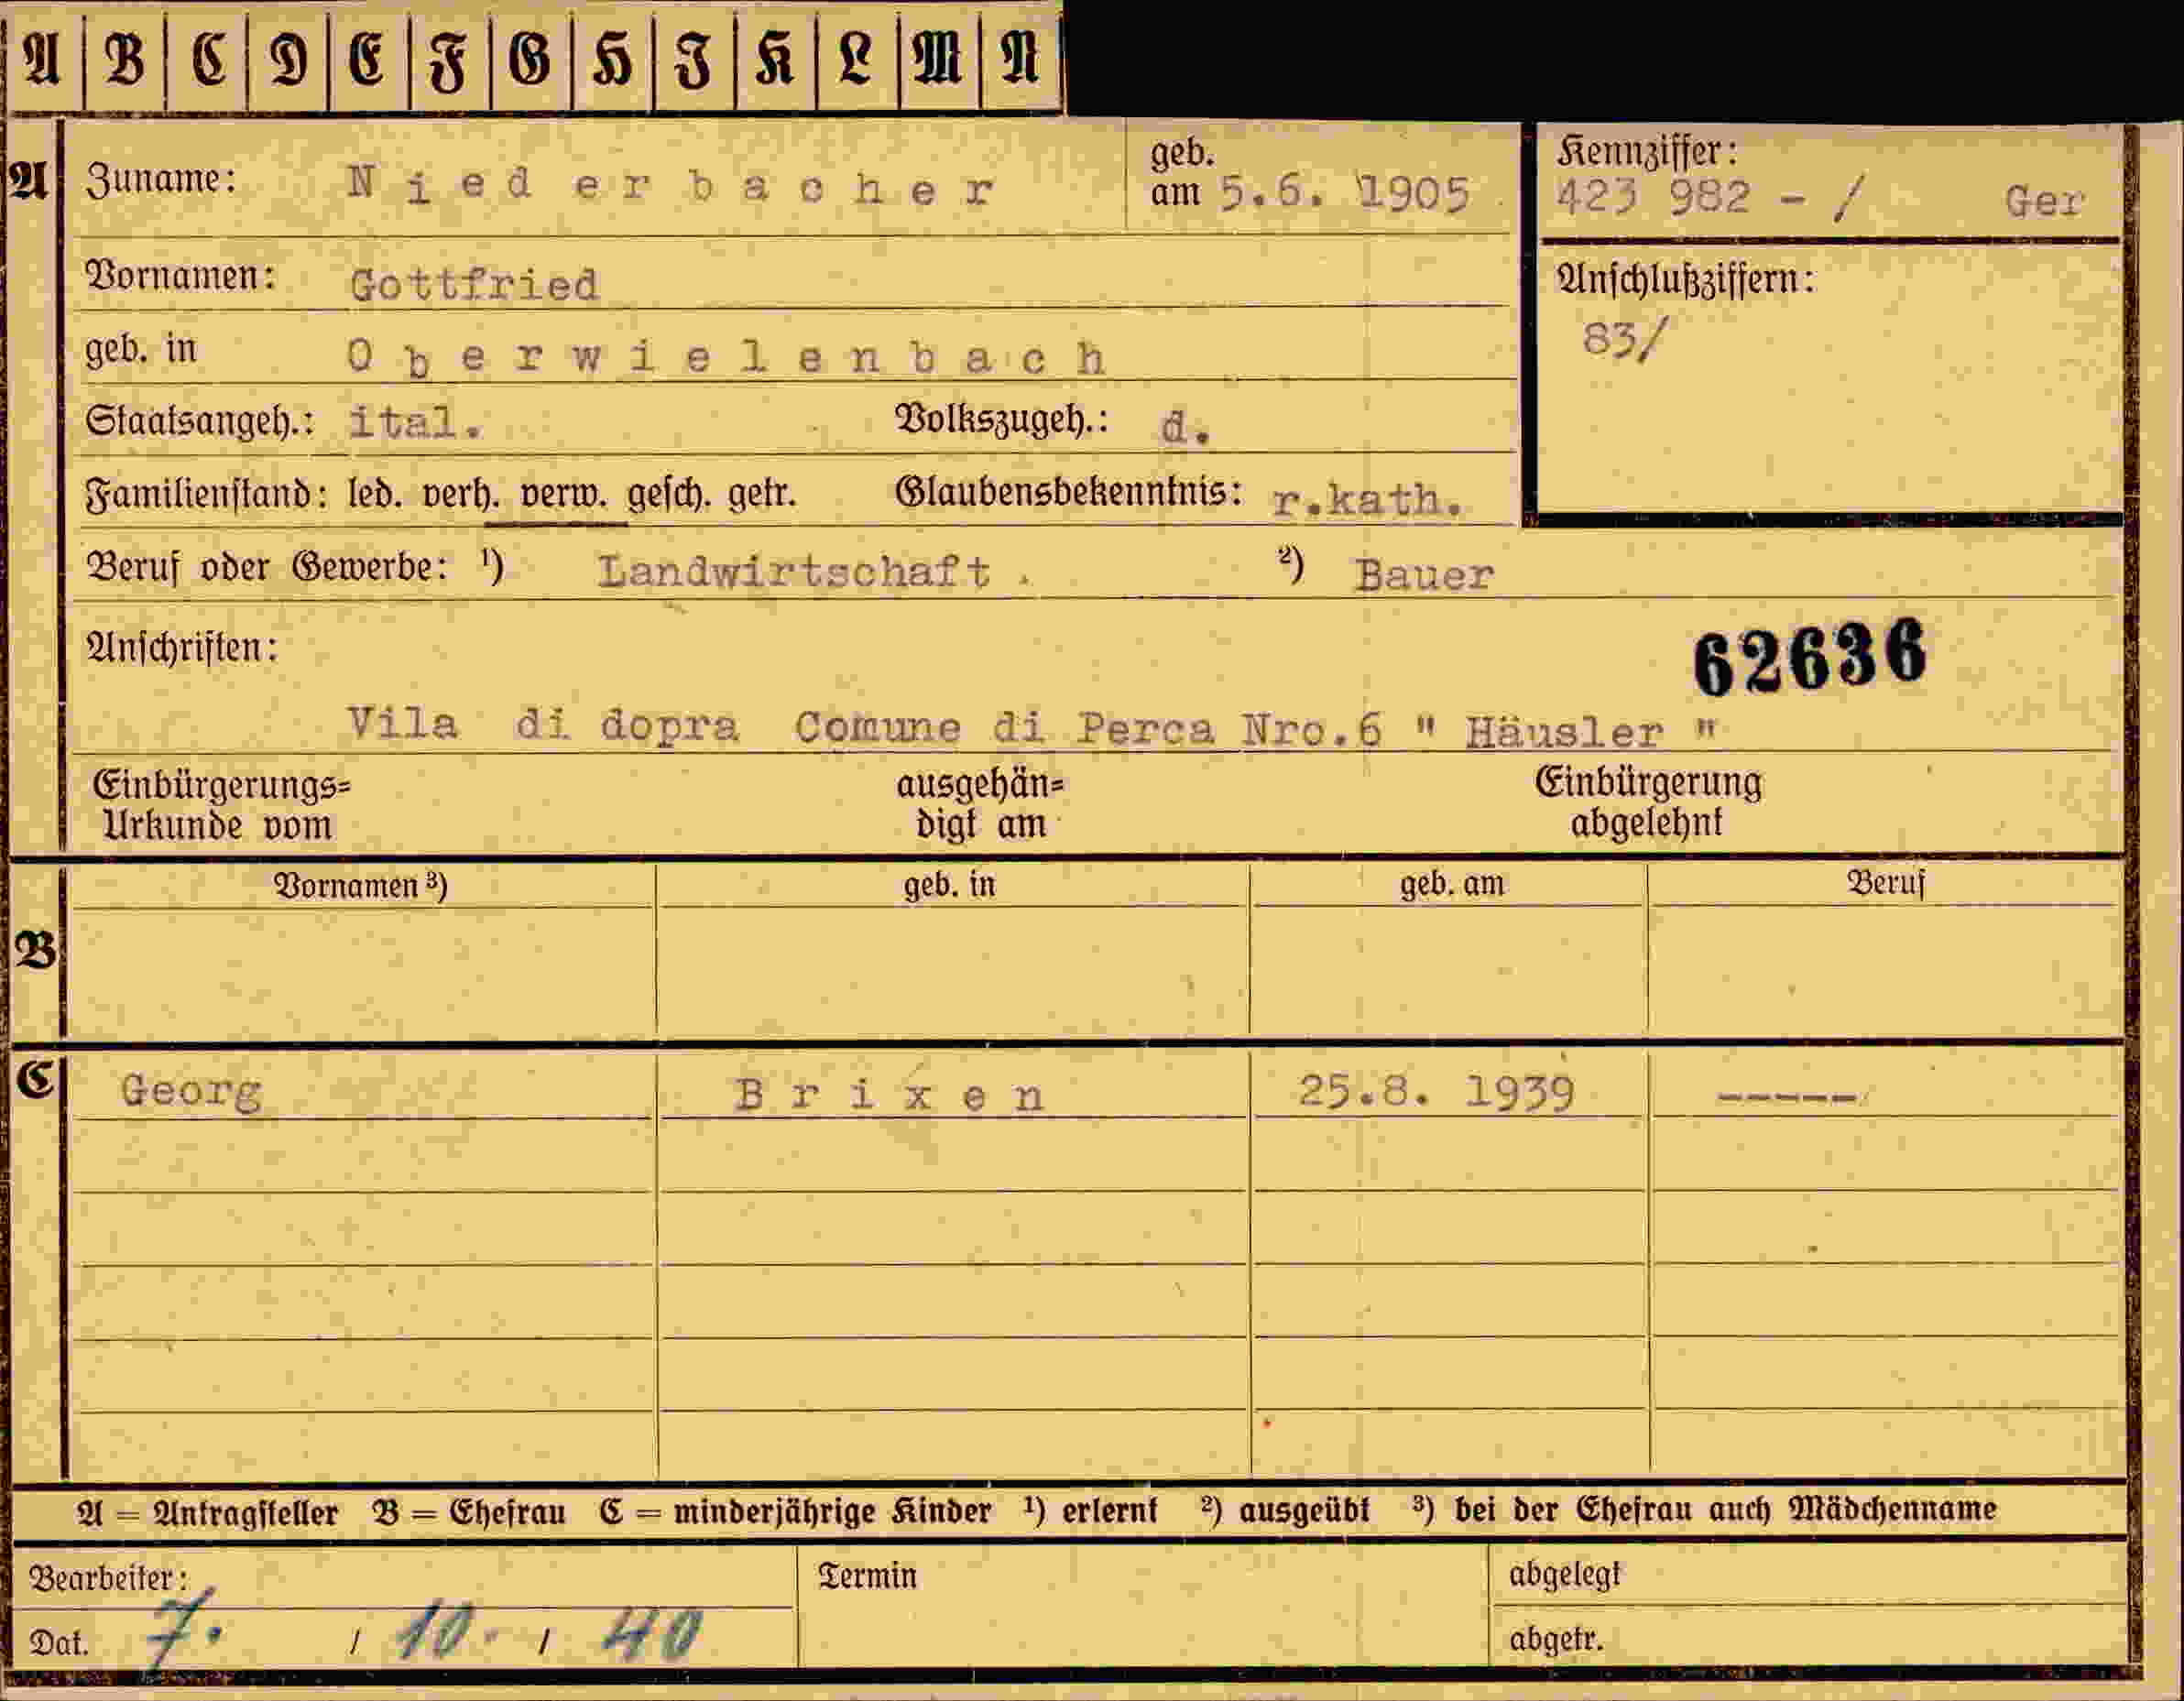 A B C D E F G H I K L M N
A Zuname: Niederbacher geb. am 5.6. 1905 Kennziffer: 423 982 - / Ger
Vornamen: Gottfried Anschlußziffern:
geb. in Oberwielenbach 83/
Staatsangeh.: ital. Volkszugeh.: d.
Familienstand: led. verh. verw. gesch. getr. Glaubensbekenntnis: r.kath.
Beruf oder Gewerbe: ¹) Landwirtschaft . ²) Bauer
Anschriften: 62636
Vila di dopra Comune di Perca Nro.6 " Häusler "
Einbürgerungs= ausgehän= Einbürgerung
Urkunde vom digt am abgelehnt
Vornamen ³) geb. in geb. am Beruf
B
C Georg Brixen 25.8. 1939 -----
A = Antragsteller B = Ehefrau C = minderjährige Kinder ¹) erlernt ²) ausgeübt ³) bei der Ehefrau auch Mädchenname
Bearbeiter: Termin abgelegt
Dat. 7. / 10. / 40 abgetr.